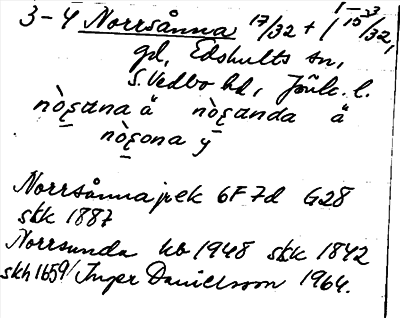 3-4 Norrsånna 17/32 + (1-3/15/32,
gd, Edshults sn,
S. Vedbo hd, Jönk. l.
nòrana ä nòranda ä
nòrona y
Norrsånna jek 6F 7d G28
skk 1887
Norrsunda kb 1948 skk 1842
skh 1659/ Inger Danielsson 1964.